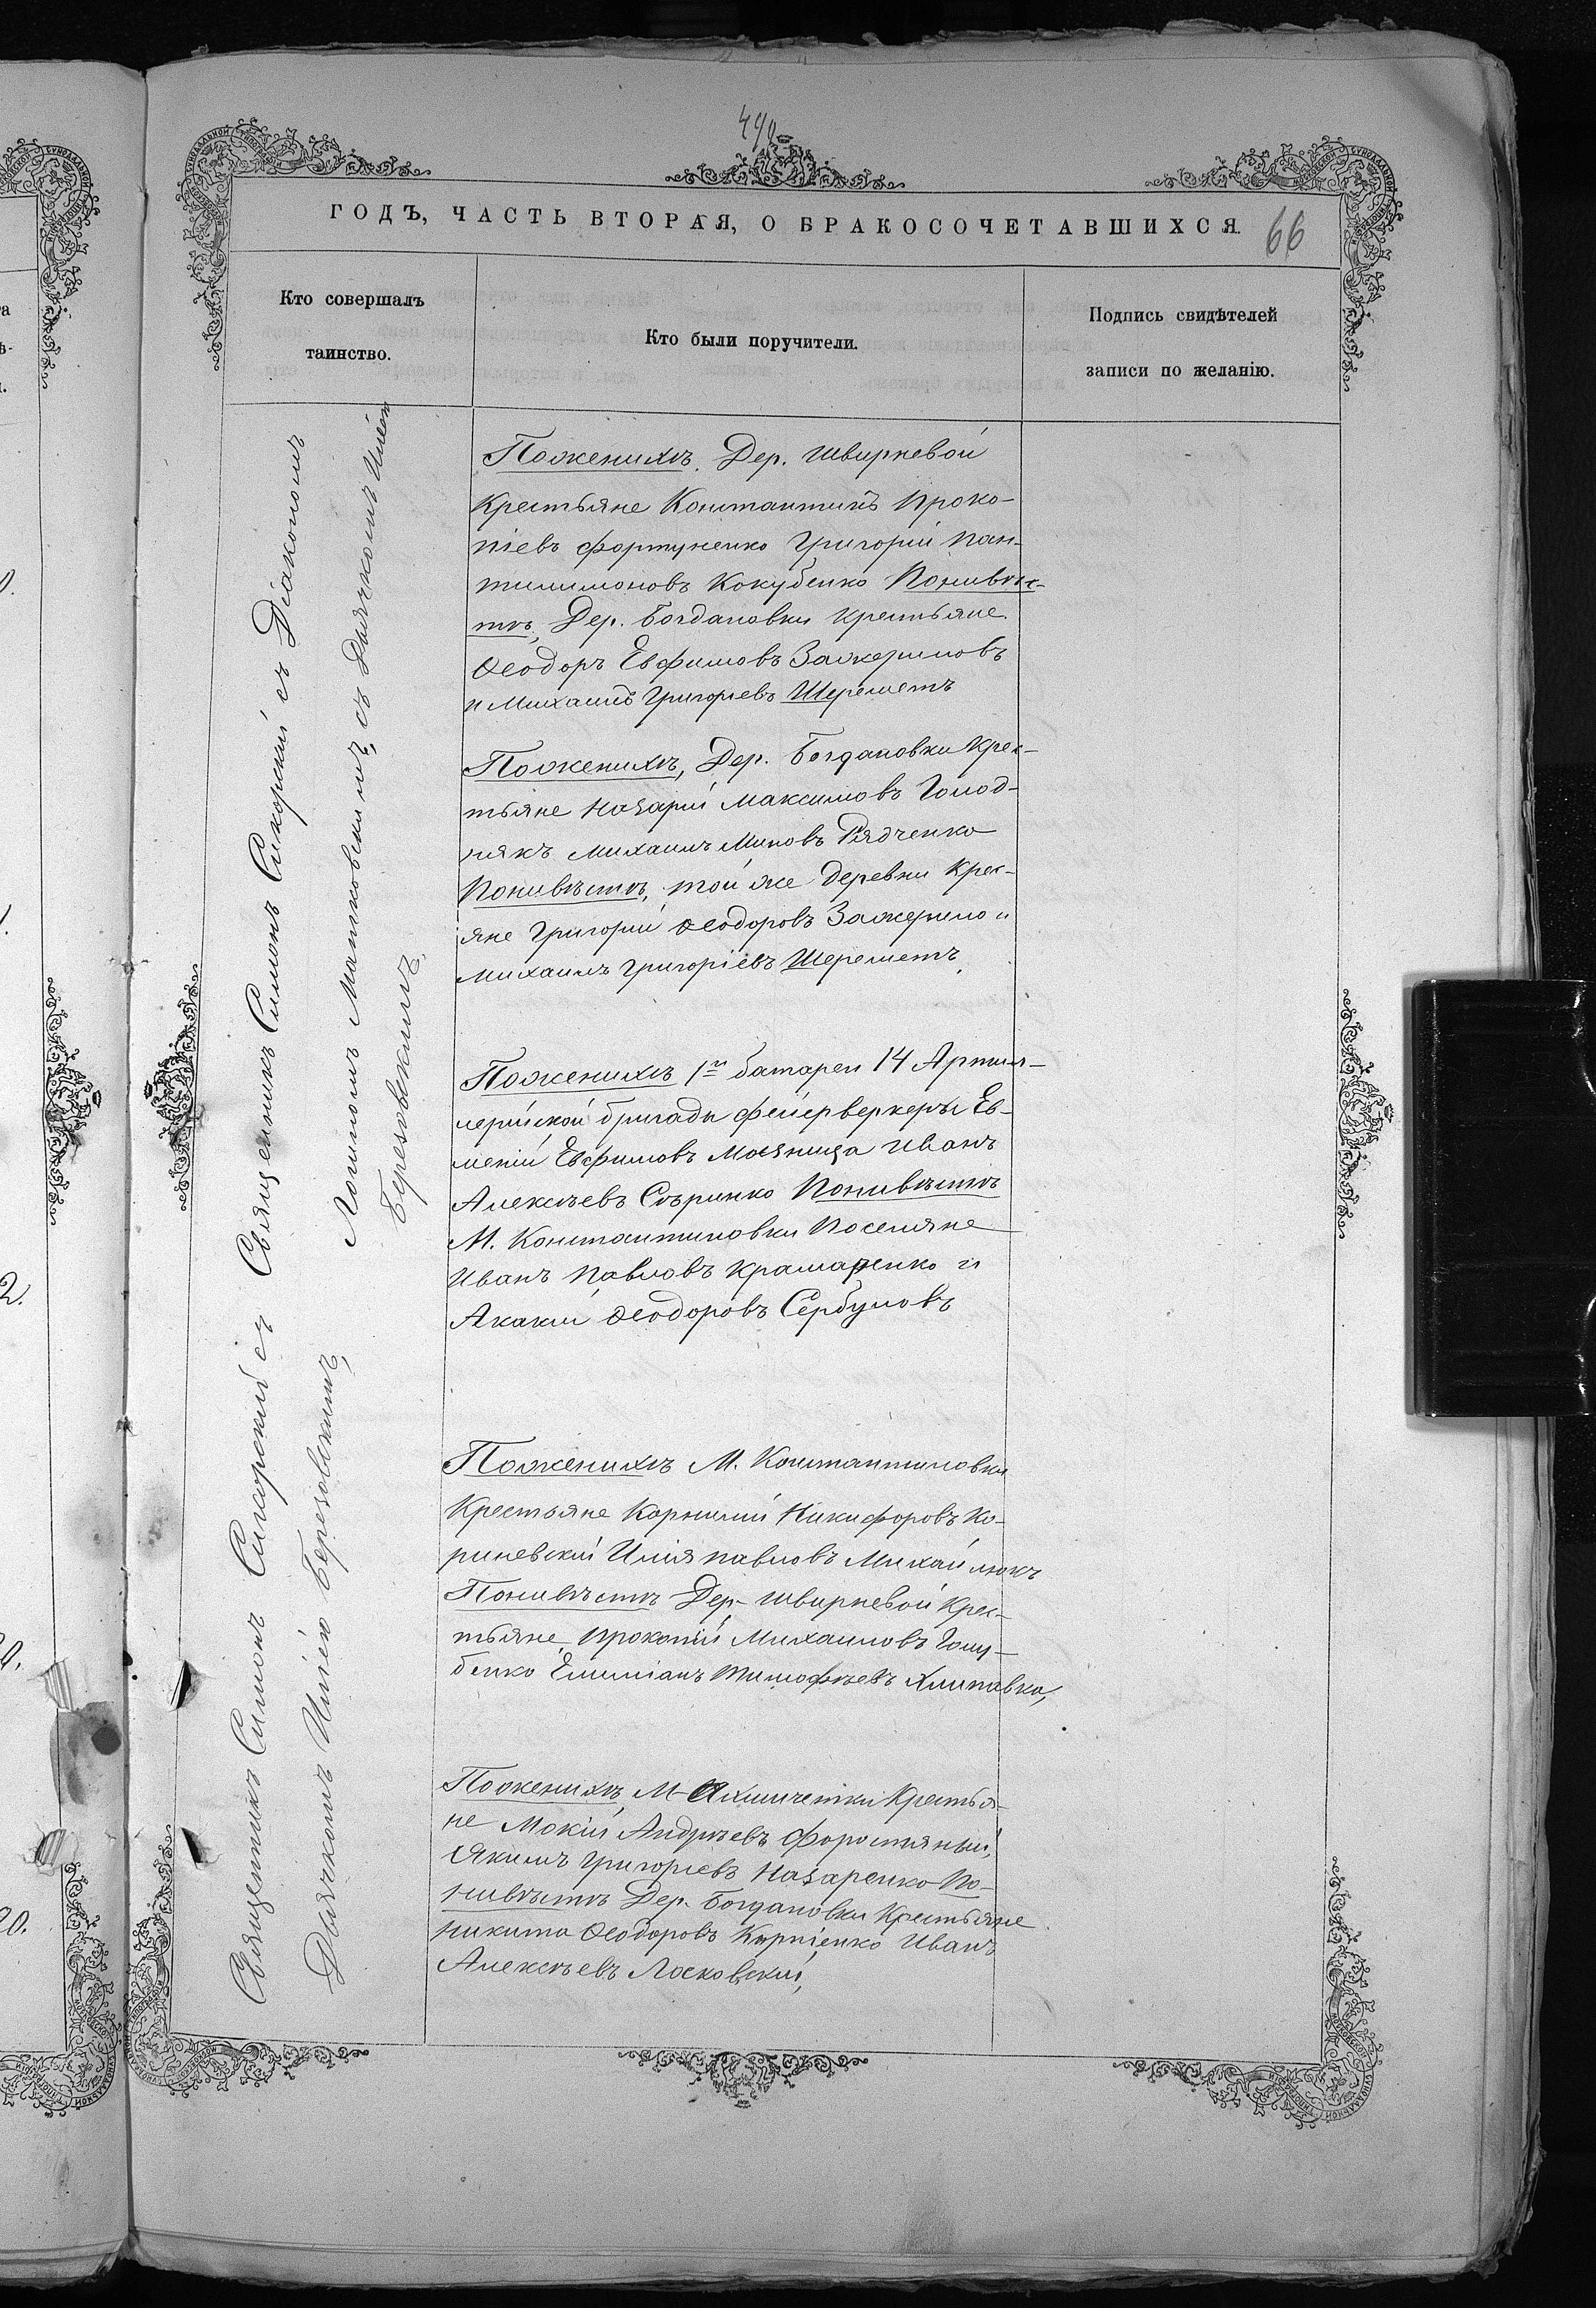 490
ГОДЪ, ЧАСТЬ ВТОРАЯ, О БРАКОСОЧЕТАВШИХСЯ.
66
Кто совершалъ
таинство.
Кто были поручители.
Подпись свидѣтелей
записи по желанію.
Священникъ Симонъ Сикорскій съ Діакономъ
Матковскимъ съ Дьячкомъ Иліею
Березовскимъ,
Священникъ Симонъ Сикорскій съ
Дьячкомъ Иліею Березовскимъ,
По женихѣ. Дер. Швирневой
Крестьяне Константинъ Проко-
піевъ Фортуненко Григорій Пан-
тилимоновъ Кокубенко По невѣс-
тѣ, Дер. Богдановки Крестьяне
Ѳеодоръ Евфимовъ Зажеримовъ
и Михаилъ Григоріевъ Шереметъ
По женихѣ, Дер. Богдановки Крес-
тьяне Назарій Максимовъ Голод-
някъ Михаилъ Миновъ Рядченко
По невѣстѣ, той же деревни Крес-
яне Григорій Ѳеодоровъ Зажерило и
Михаилъ Григоріевъ Шереметъ
По женихѣ 1й батареи 14 Артил-
лерійской бригады фейерверкеры Ев-
меній Евфимовъ Иванъ
Алексѣевъ По невѣстѣ
М. Константиновки Поселяне
Иванъ Павловъ Крамаренко и
Акакій Ѳеодоровъ Сербуловъ
По женихѣ М. Константиновки
Крестьяне Корнилій Никифоровъ Ко-
риневскій Илія Павловъ Михайлюкъ
По невѣстѣ Дер. Швирневой Крес-
тьяне Прокопій Михаиловъ Голу-
бенко Емиліанъ Тимофѣевъ Хлипавка,
По женихѣ М. Акмичетки Крестья-
не Мокій Андрѣевъ Форостяный,
Якимъ Григоріевъ Назаренко По
невѣстѣ Дер. Богдановки Крестьяне
Никита Ѳеодоровъ Корніенко Иванъ
Алексѣевъ Лосковскій,